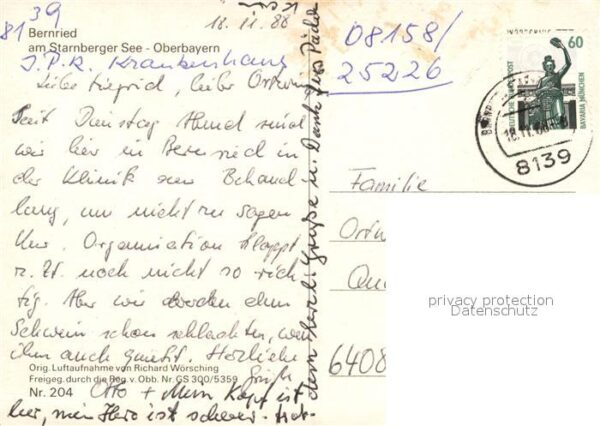 8139
18.11.88
Bernried
am Starnberger See - Oberbayern
J.P.K. Krankenhaus
08158/
25226
Liebe Siegrid, lieber Ortwin
Seit Dienstag Abend sind
wir hier in Bernried in
der Klinik zur Behand
lung, um nicht zu sagen
Kur. Organisation klappt
z. Zt. noch nicht so rich
tig. Aber wir werden dem
Schwein schon schlachten, wenn
ihm auch quiekt. Herzliche
Grüße
Otto + Mein Kopf ist
leer, mein Herz ist schwer - trotz-
dem Herzl. Grüße u. Dank fürs Päckch
Orig. Luftaufnahme von Richard Wörsching
Freigeg. durch die Reg. v. Obb. Nr. GS 300/5359
Nr. 204
60
DEUTSCHE BUNDESPOST
BAVARIA MÜNCHEN
18.11.88
8139
Familie
Ortw
6408
privacy protection
Datenschutz